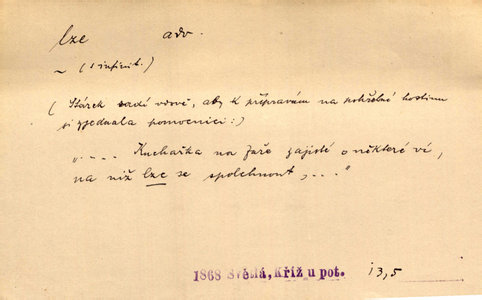 lze adv.
~ (s infinit.)
( Stárek radí vdově, aby k přípravám na pohřební hostinu
si zjednala pomocnici:)
„.... Kuchařka na faře zajisté o některé ví,
na niž lze se spolehnout, ..."
1868 Světlá, Kříž u pot. 13,5